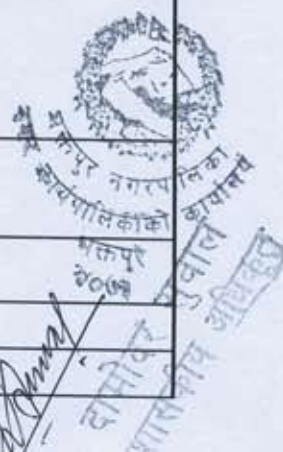 भक्तपुर नगरपालिका
नगर कार्यपालिकाको कार्यालय
भक्तपुर
२०७३
दामोदर सुवाल
प्रशासकीय अधिकृत